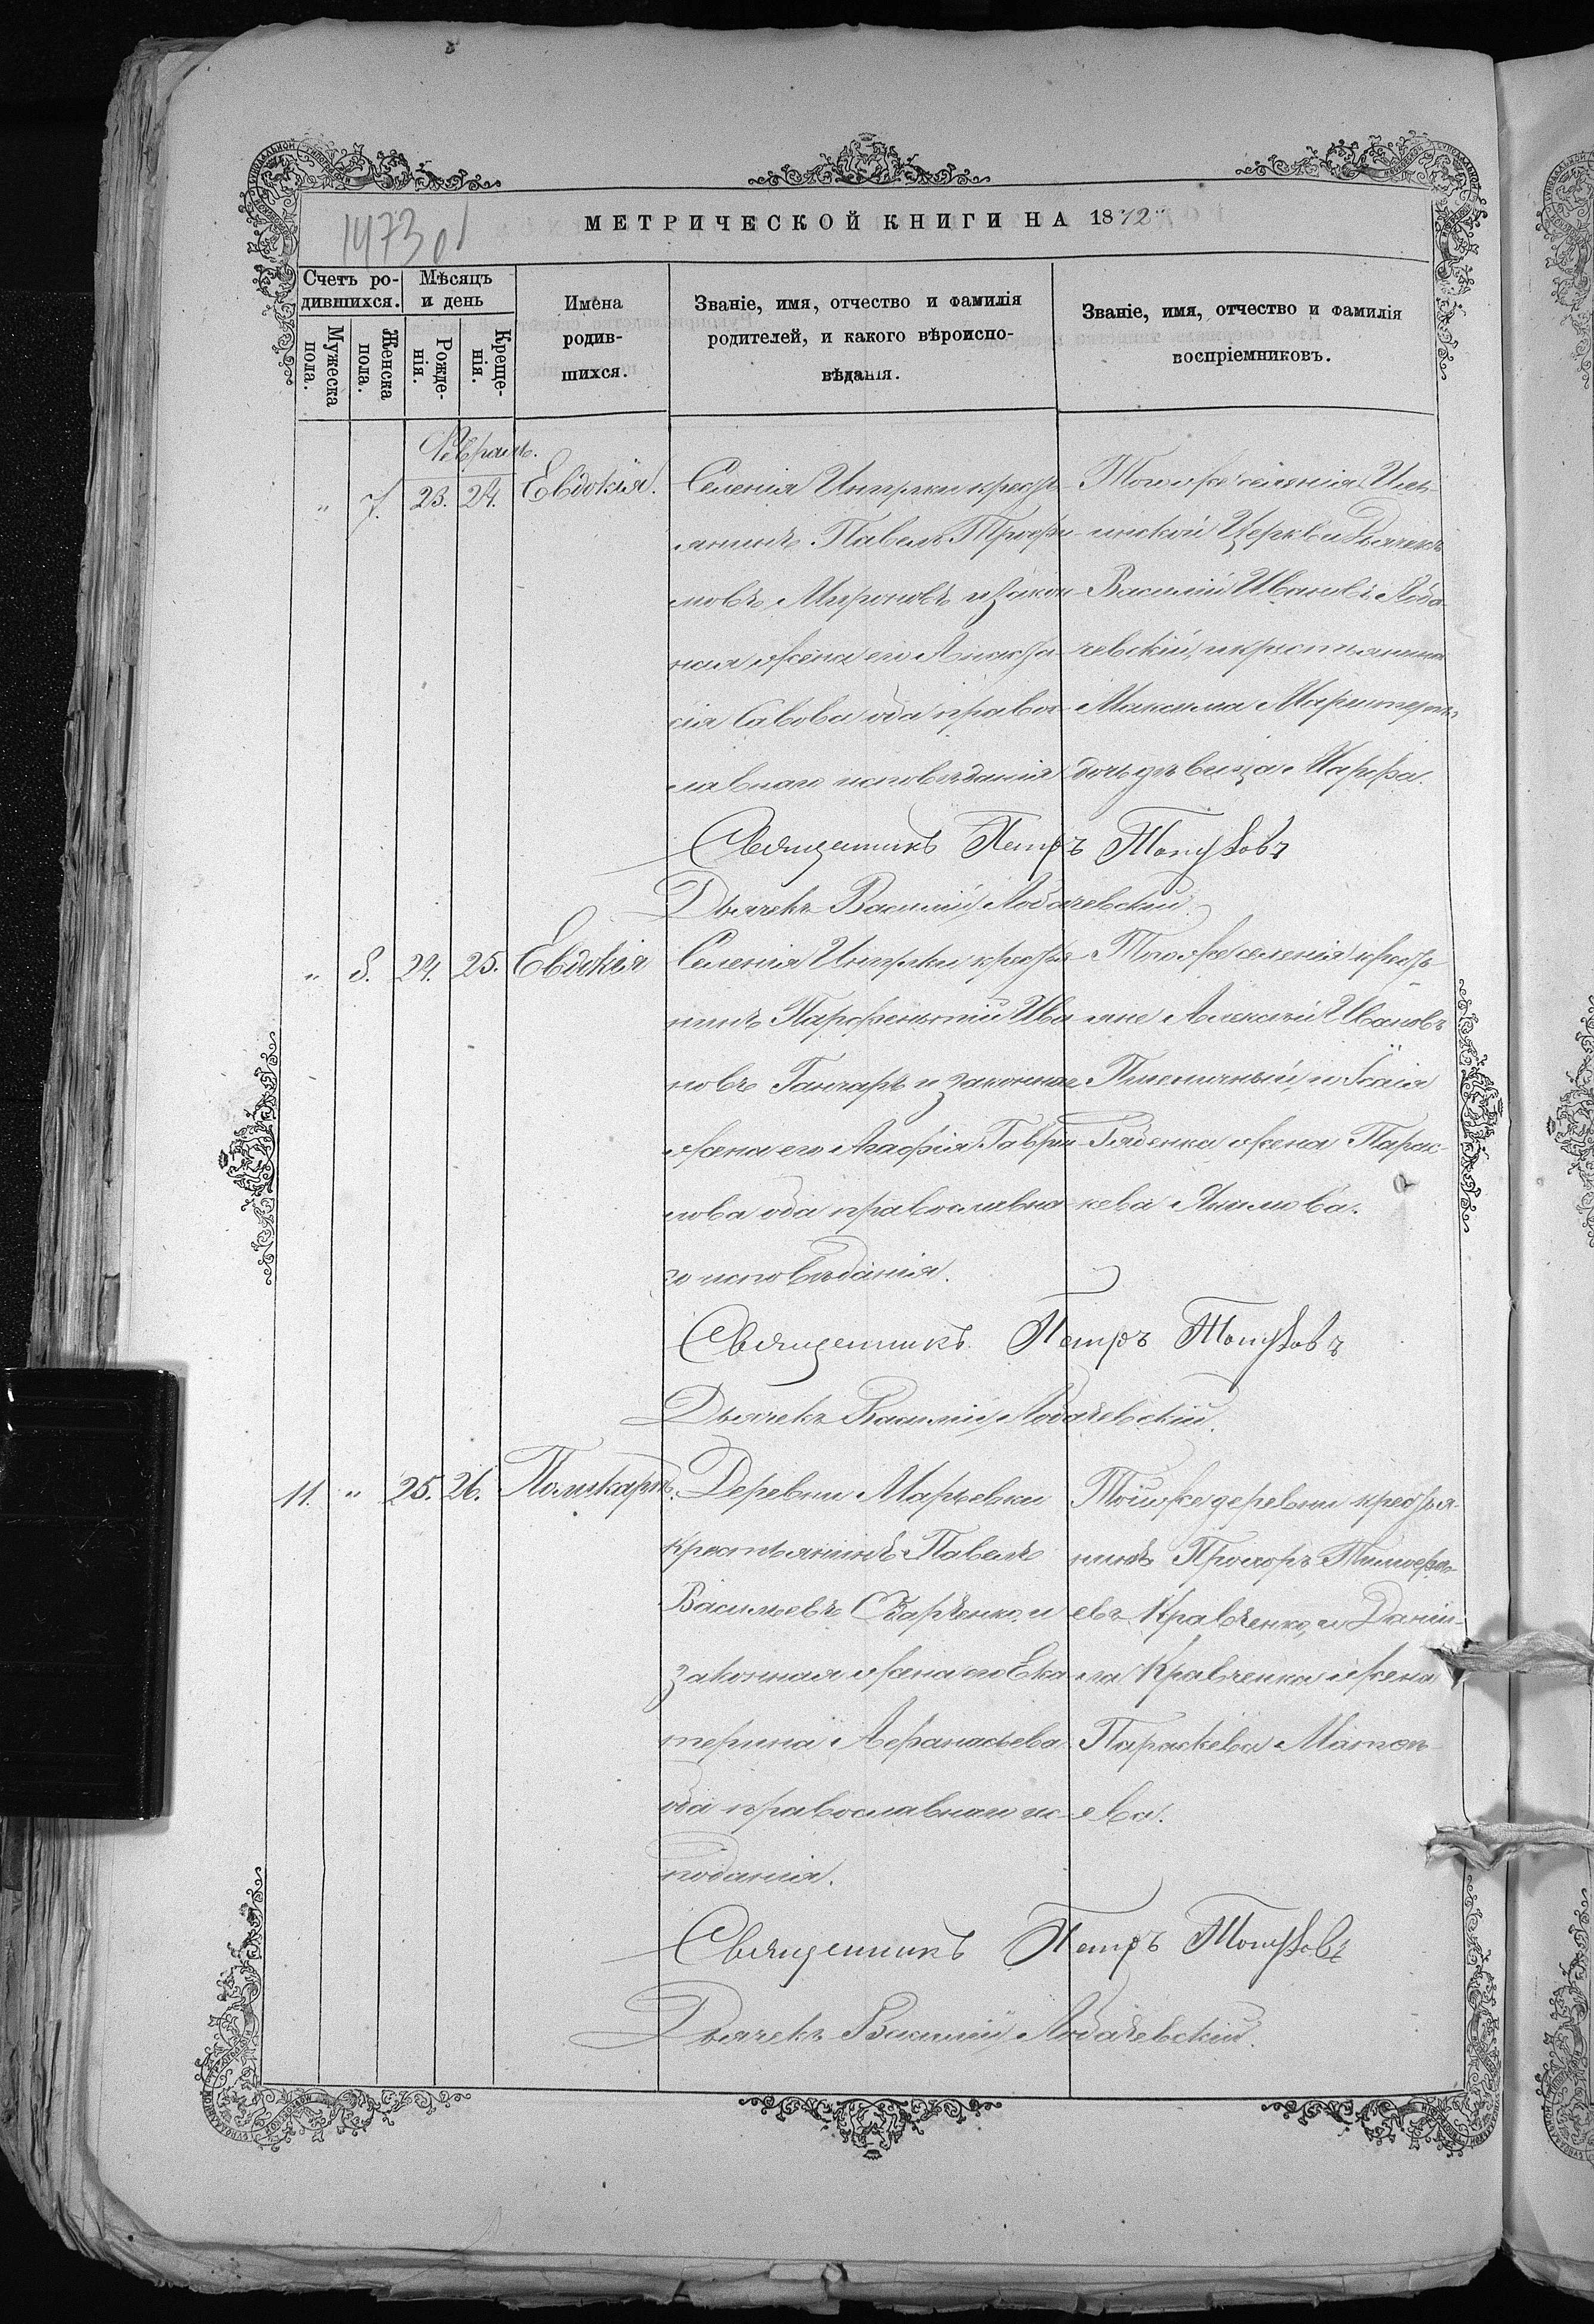 1473 об
МЕТРИЧЕСКОЙ КНИГИ НА 1872
Счетъ ро-
дившихся.
Мѣсяцъ
и день
Мужеска
пола.
Женска
пола.
Рожде-
нія.
Креще-
нія.
Имена
родив-
шихся.
Званіе, имя, отчество и фамилія
родителей, и какого вѣроиспо-
вѣданія.
Званіе, имя, отчество и фамилія
воспріемниковъ.
Февраль.
" 7. 23. 24. Евдокія.
Селенія Ингулки кресть
янинъ Павелъ Трофи
мовъ Мироновъ и закон
ная жена его Анаста
сія Савова оба правос
лавнаго исповѣданія
Того же селенія
Церкви Дьячекъ
Василій Ивановъ Лоба
чевскій, и крестьянина
Максима
дочь дѣвица Марфа.
Священникъ Петръ
Дьячекъ Василій Лобачевскій
" 8. 24. 25. Евдокія
Селенія Ингулки крестья
нинъ Парфентій Ива
новъ Ганчаръ и законная
жена его Агафія Гаври
лова оба православна
го исповѣданія.
Того же селенія кресть
яне Алексѣй Ивановъ
Пшеничный, и Ісаія
жена Парас-
кева Акимова.
Священникъ Петръ
Дьячекъ Василій Лобачевскій.
11. " 25. 26. Поликарпъ.
Деревни Марьевки
крестьянинъ Павелъ
Васильевъ и
законная жена его Ека
терина Афанасьева
оба православнаго ис
поданія.
Той же деревни крестья-
нинъ Прохоръ Тимофе-
евъ Кравченко, и Даніи-
ла Кравченка жена
Параскева Матве-
ева.
Священникъ Петръ
Дьячекъ Василій Лобачевскій.